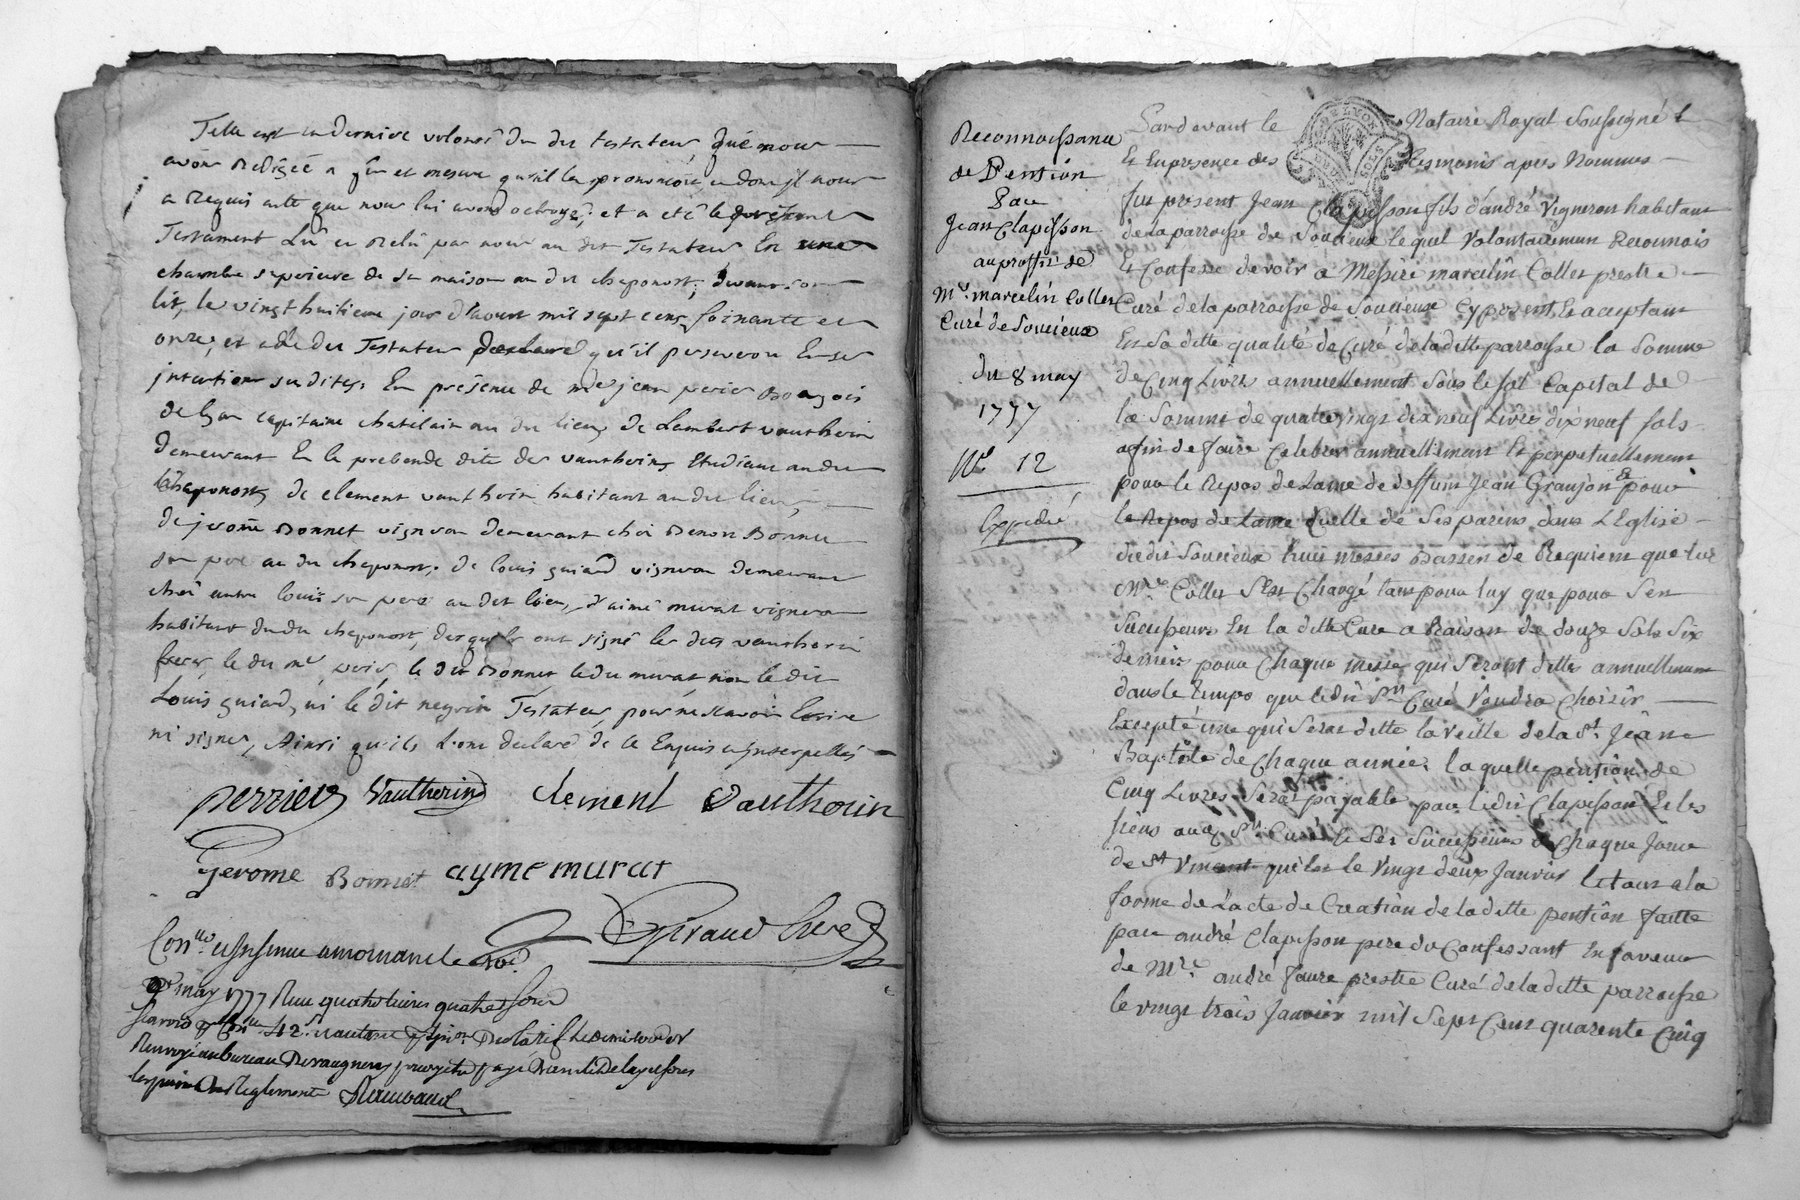 Telle est la derniere volonté du dit testateur, que nous
avons redigée a fur et mesure qu'il la prononcée, dont il nous
a requis acte que nous lui avons octroyé, et a eté le présent
Testament Lû et Relû par nous au dit Testateur En une
chambre superieure de sa maison au dit chaponost, devant son
lit, le vingt huitieme jour d'aoust mil sept cens soixante et
onze, et a le dit Testateur declaré qu'il perseveroit En ses
intentions susdites, En présence de me jean perier Bourgois
de Lyon capitaine chatelain au dit lieu, de Lambert vautherin
demeurant En la prebende dite des vautherins Etudiant au dit
chaponost, de clement vautherin habitant au dit lieu,
de jerome Bonnet vigneron demeurant chés Benoit Bonnet
son pere au dit chaponost, de louis guiard vigneron demeurant
chés autre louis son pere au dit lieu, d'aimé murat vigneron
habitant du dit chaponost, desquels ont signé les dits vautherin
freres, le dit me perier, le dit Bonnet, le dit murat, non le dit
Louis guiard, ni le dit negrin Testateur, pour ne sçavoir Ecrire
ni signer, Ainsi qu'ils L'ont declaré de ce Enquis et interpellés
perrier Vautherin clement vautherin
Jerome Bonnet ayme murat
Giraud Curé
Con.lle et insinué a mornant le
9e may 1777 Reçu quatre livres quatre sous
Renvoyé au bureau pour être payé
Reglements
Reconnoissance
de Pention
Par
Jean Clapisson
au proffit de
Mre. marcelin Collet
Curé de Soucieux
du 8 may
1777
No 12
Expedié
Pardevant le Notaire Royal Soussigné &
Et En presence des tesmoins apres Nommés
fut present Jean Clapisson fils d'andré Vigneron habitant
de la parroisse de Soucieux lequel Volontairement Reconnois
Et Confesse devoir a Messire marcelin Collet prestre
Curé de la parroisse de Soucieux Cy present, Et acceptant
En Sa ditte qualité de Curé de la ditte parroisse la Somme
de Cinq Livres annuellement Sous le fal Capital de
la Somme de quatre vingt dix neuf Livre dix neuf Sols
afin de faire Celebrer annuellement Et perpetuellement
pour le Repos de Lame de deffunt Jean Granjon Et pour
le Repos de Lame d'celle de Ses parens dans L'Eglise
dudit Soucieux huit messes Basses de Requiem que led
Mre Collet S'est Chargé tant pour luy que pour Ses
Successeurs En la ditte Cure a Raison de douze Sols Six
deniers pour Chaque messe qui Seront dittes annuellement
dans le temps que ledit Sr Curé Voudra Choisir
Excepté une qui Sera ditte la veille de la St. Jean
Baptiste de Chaque année, laquelle pention de
Cinq Livres Sera payable par ledit Clapisson Et les
siens aud Sr. Curé & Ses Successeurs a Chaque Jour
de St Vincent qui est le Vingt deux Janvier le tout a la
forme de L'acte de Creation de la ditte pention faitte
par andré Clapisson pere du Confessant En faveur
de Mre. andré faure prestre Curé de la ditte parroisse
le vingt trois Janvier mil Sept Cent quarente Cinq